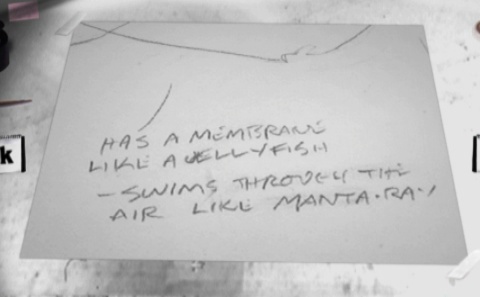 HAS A MEMBRANE
LIKE A JELLYFISH
- SWIMS THROUGH THE
AIR LIKE MANTA·RAY
k